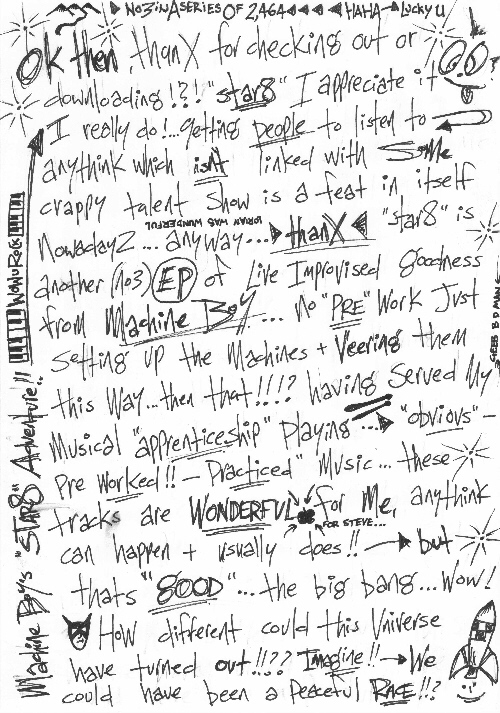 No3 in A SERIES OF 2,464 HAHA Lucky U
Ok then, thanX for checking out or
downloading!?! "star8" I appreciate it
I really do!...getting people to listen to
anythink which isnt linked with some
crappy talent show is a feat in itself
NowadayZ... anyway... thanX "star8" is
LORAN WAS WUNDERFUL
another (no3) EP of Live Improvised goodness
from Machine Boy.... no "PRE" Work Just
setting up the Machines + Veering them
this Way...then that!!!!? having Served My
Musical "apprenticeship" Playing... "obvious" –
Pre Worked!! – Practiced" Music... these
tracks are WONDERFUL for Me, anythink
FOR STEVE...
can happen + usually does!! but
thats "GOOD"... the big bang... WOW!
HOW different could this Universe
have turned out!!?? Imagine!! We
could have been a Peaceful RACE!!?
Machine Boy's "STAR8" Adventure!!